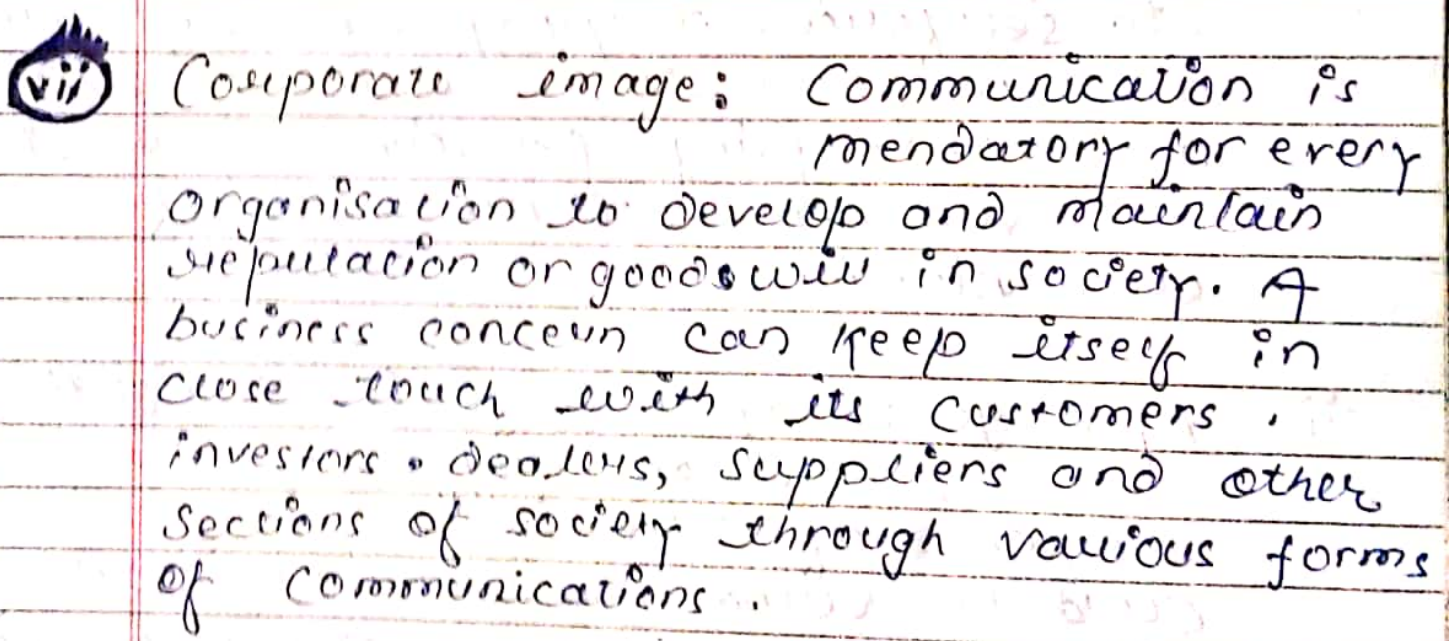 vii Corporate image: Communication is
mendatory for every
organisation to develop and maintain
reputation or goodswill in society. A
business concern can keep itself in
close touch with its customers,
investors, dealers, suppliers and other
sections of society through various forms
of communications.